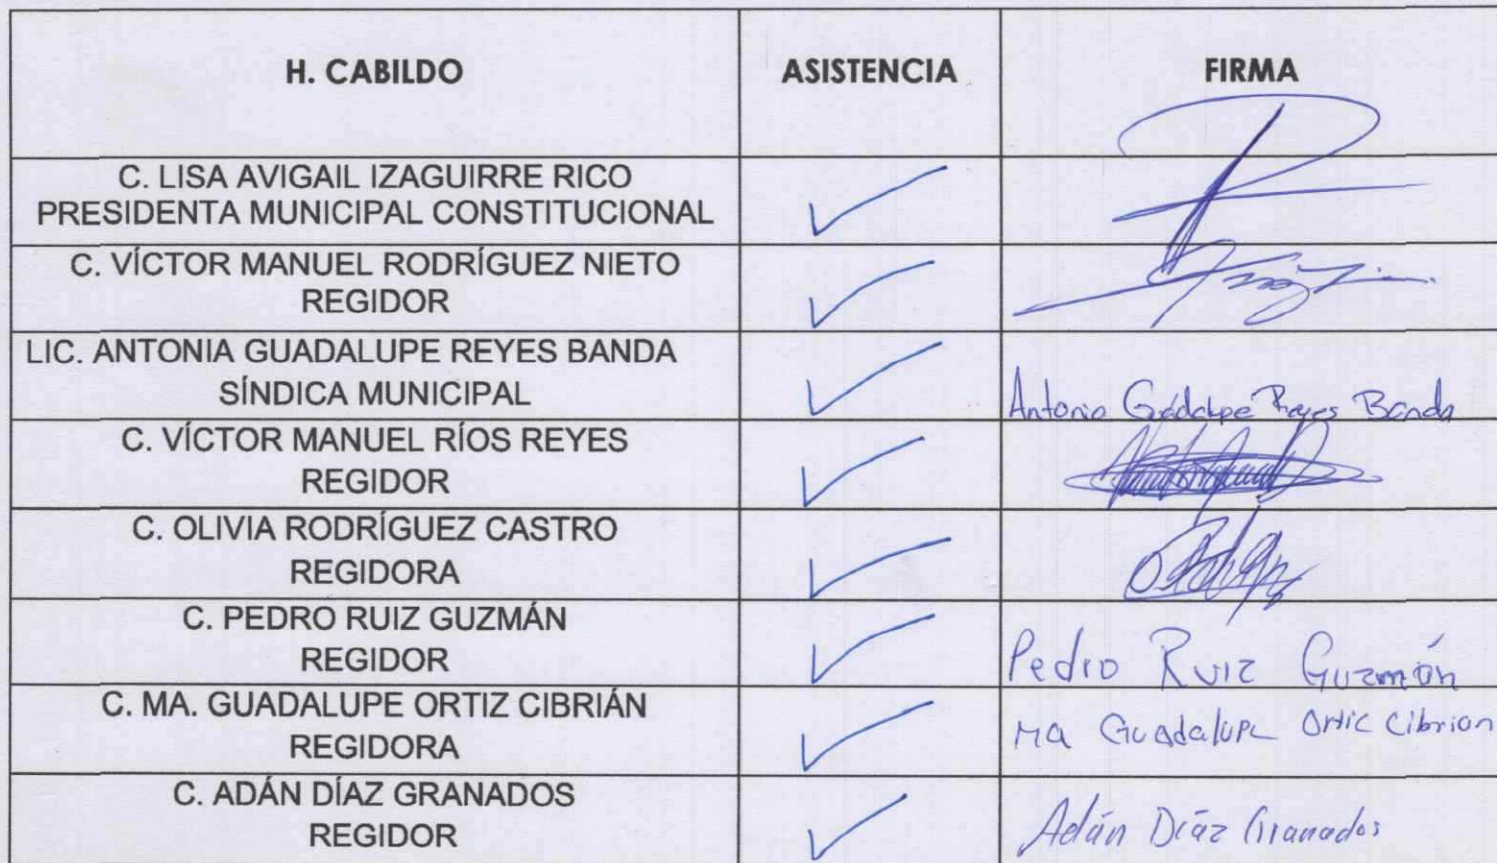 H. CABILDO ASISTENCIA FIRMA
C. LISA AVIGAIL IZAGUIRRE RICO
PRESIDENTA MUNICIPAL CONSTITUCIONAL
C. VÍCTOR MANUEL RODRÍGUEZ NIETO
REGIDOR
LIC. ANTONIA GUADALUPE REYES BANDA
SÍNDICA MUNICIPAL
Antonia Guadalupe Reyes Banda
C. VÍCTOR MANUEL RÍOS REYES
REGIDOR
C. OLIVIA RODRÍGUEZ CASTRO
REGIDORA
C. PEDRO RUIZ GUZMÁN
REGIDOR
Pedro Ruiz Guzmán
C. MA. GUADALUPE ORTIZ CIBRIÁN
REGIDORA
Ma Guadalupe Ortic Cibrian
C. ADÁN DÍAZ GRANADOS
REGIDOR
Adán Díaz Granados